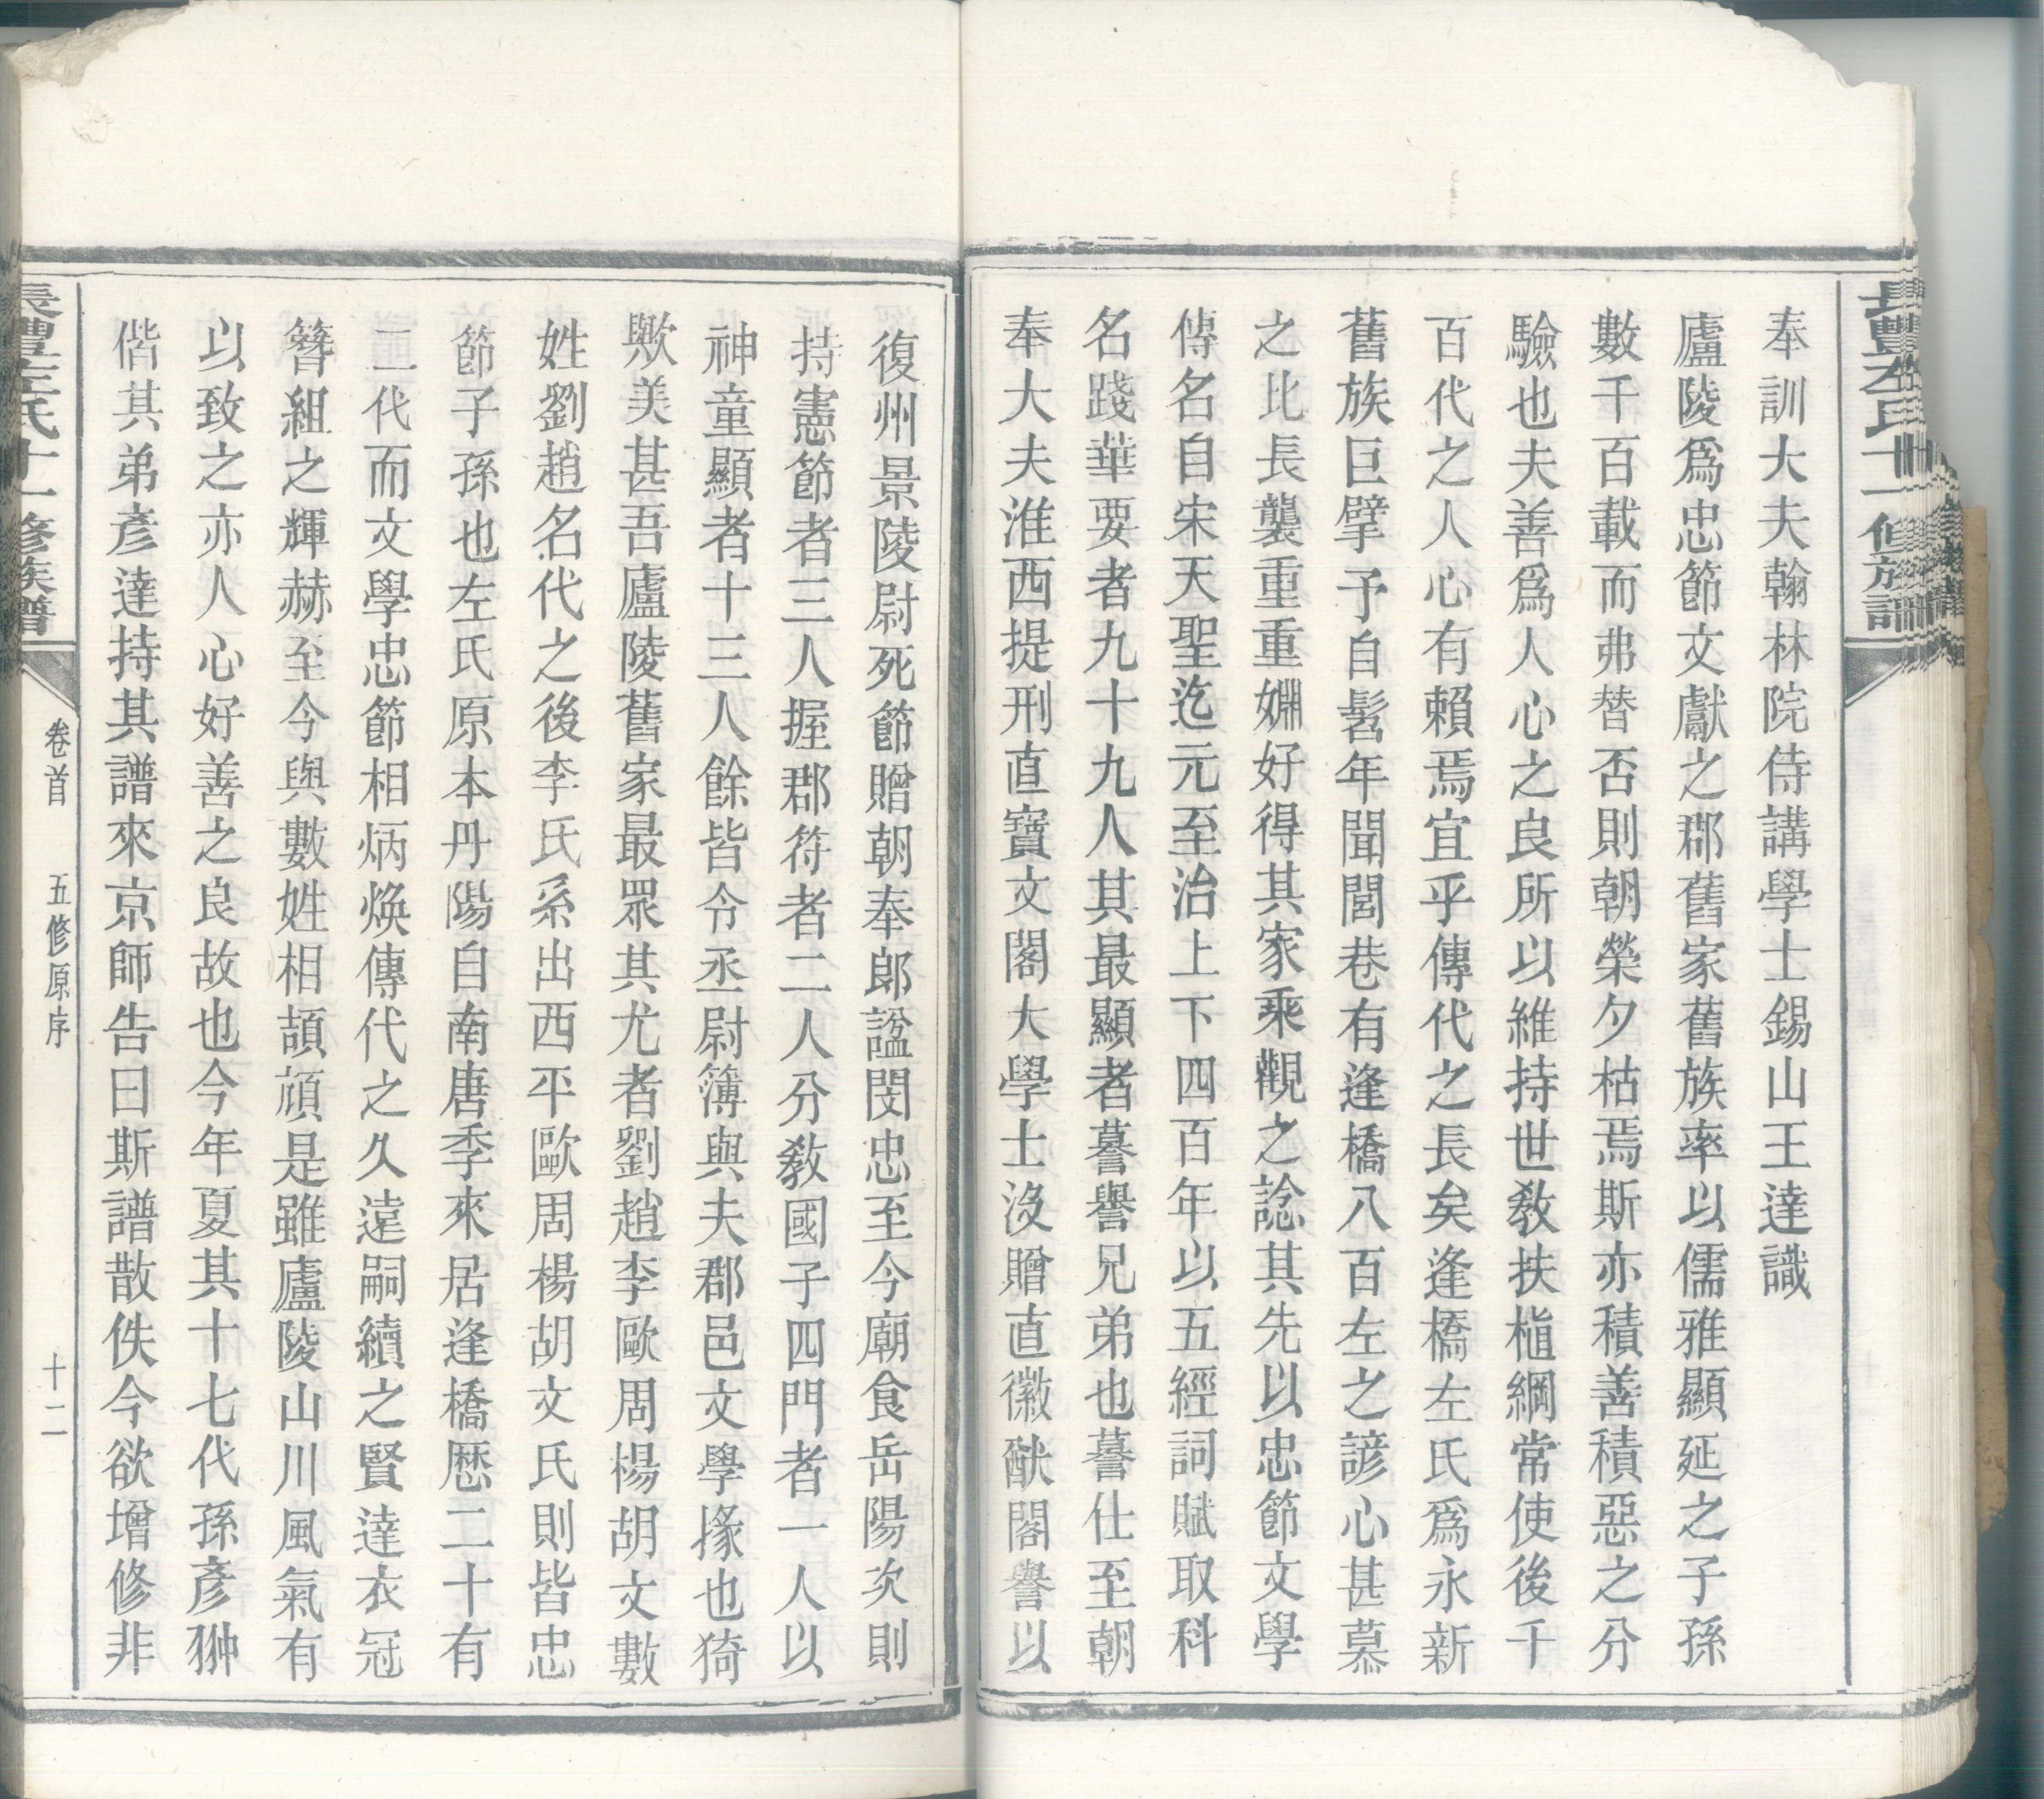 奉訓大夫翰林院侍講學士錫山王達識
廬陵爲忠節文獻之郡舊家舊族率以儒雅顯延之子孫
數千百載而弗替否則朝榮夕枯焉斯亦積善積惡之分
驗也夫善爲人心之良所以維持世教扶植綱常使後千
百代之人心有賴焉宜乎傳代之長矣逢橋左氏爲永新
舊族巨擘予自髫年聞閭巷有逢橋八百左之諺心甚慕
之比長襲重重姻好得其家乘觀之諗其先以忠節文學
傳名自宋天聖迄元至治上下四百年以五經詞賦取科
名踐華要者九十九人其最顯者謩譽兄弟也謩仕至朝
奉大夫淮西提刑直寶文閣大學士沒贈直徽猷閣譽以
復州景陵尉死節贈朝奉郎諡閔忠至今廟食岳陽次則
持憲節者三人握郡符者二人分教國子四門者一人以
神童顯者十三人餘皆令丞尉簿與夫郡邑文學掾也猗
歟美甚吾廬陵舊家最眾其尤者劉趙李歐周楊胡文數
姓劉趙名代之後李氏系出西平歐周楊胡文氏則皆忠
節子孫也左氏原本丹陽自南唐季來居逢橋歷二十有
二代而文學忠節相炳煥傳代之久遠嗣續之賢達衣冠
簪組之輝赫至今與數姓相頡頏是雖廬陵山川風氣有
以致之亦人心好善之良故也今年夏其十七代孫彥翀
偕其弟彥達持其譜來京師告曰斯譜散佚今欲增修非
長豐左氏十一修族譜
卷首
五修原序
十二